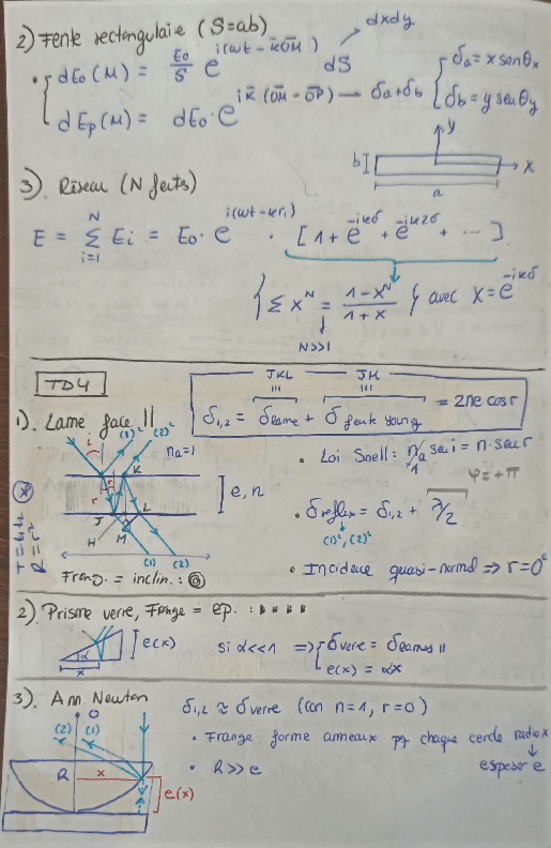 2) Fente rectangulaire (S=ab)
dxdy
• { dE₀(M) = E₀/S e^{i(ωt - k̄OM̄)} dS
dEp(M) = dE₀·e^{ik̄(OM̄ - OP̄)} → δa+δb { δa = x senθx
δb = y senθy
y
b
x
a
3). Réseau (N fents)
E = Σ_{i=1}^{N} Ei = E₀· e^{i(ωt-kr₁)} · [1 + e^{-ikδ} + e^{-ik2δ} + ...]
{ Σ x^N = (1-x^N)/(1+x) } avec x = e^{-ikδ}
N>>1
TD4
JKL JH
δ1,2 = δlame + δ fente young = 2ne cosr
1). Lame face //
i (1)' (2)' na=1
r K
e, n
J L
H M
(1) (2)
T=tt'
R=r²
Frang. = inclin. :
• Loi Snell: na sen i = n·sen r
1
φ=+π
• δreflex = δ1,2 + λ/2
(1)', (2)'
• Incidence quasi-normal ⇒ r=0°
2) Prisme verre, Frange = ep. :
α
x
e(x)
si α<<1 ⇒ { δverre = δlames //
e(x) = αx
3). Ann. Newton
O
(2) (1)
R x
e(x)
δ1,2 ≈ δverre (con n=1, r=0)
• Frange forme anneaux pq chaque cercle radio x
↓
espesor e
• R>>e